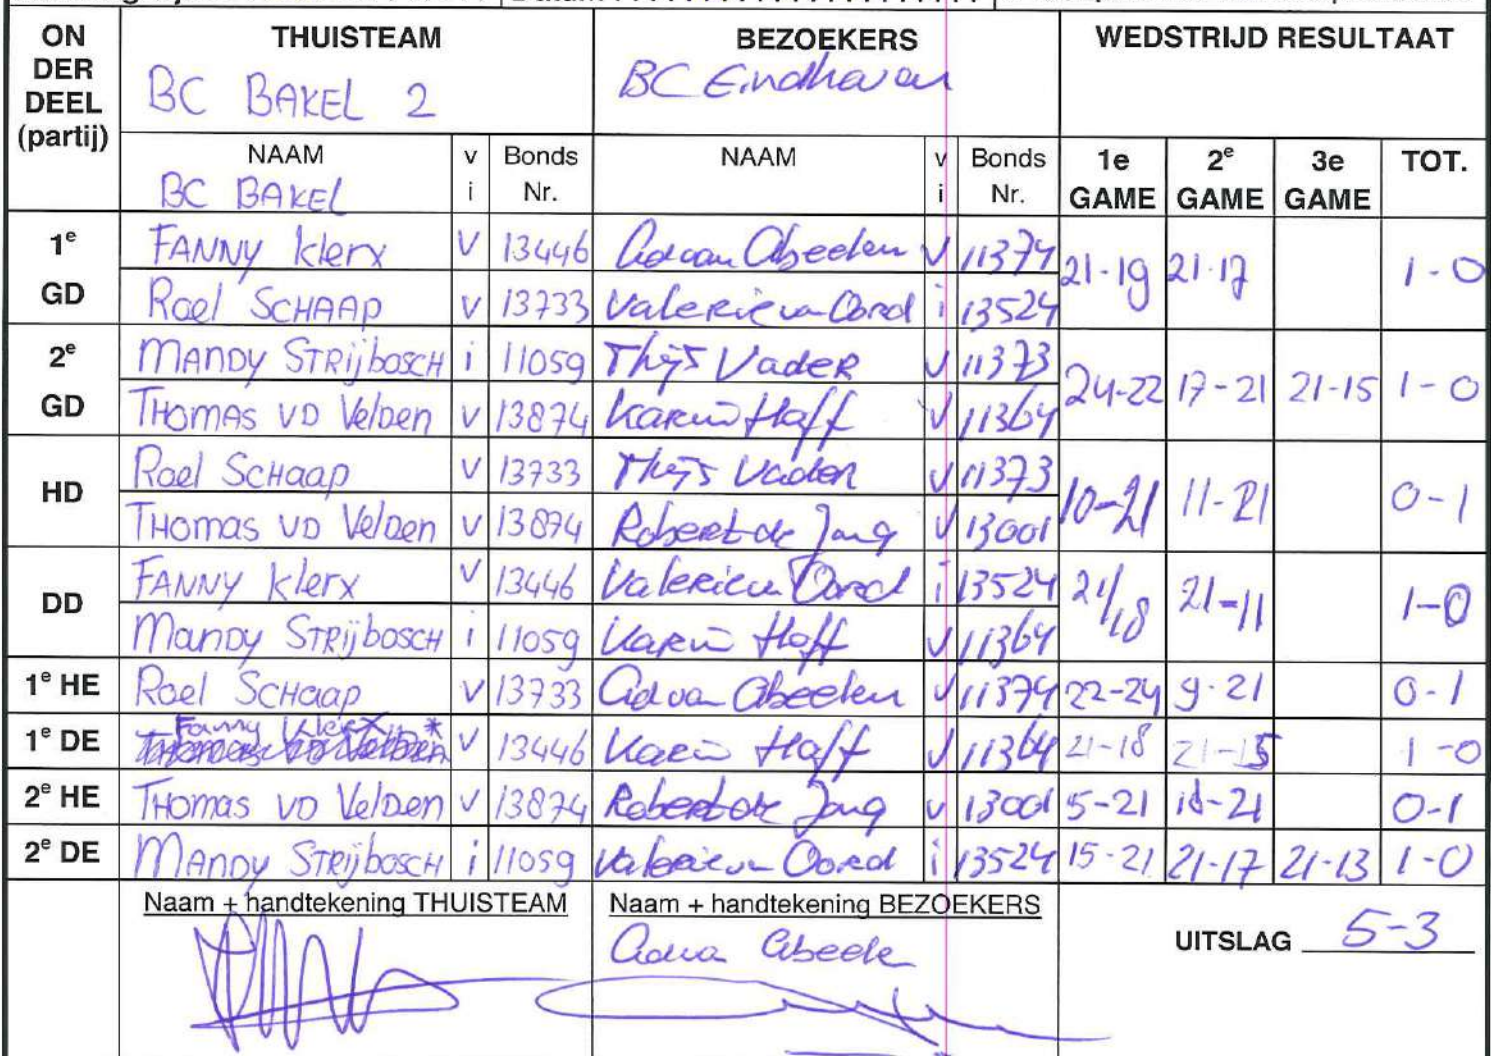 ON DER DEEL (partij) THUISTEAM BEZOEKERS WEDSTRIJD RESULTAAT
BC BAKEL 2 BC Eindhoven
NAAM v i Bonds Nr. NAAM v i Bonds Nr. 1e GAME 2e GAME 3e GAME TOT.
BC BAKEL
1e GD FANNY Klerx V 13446 Ad van Abeelen V 11374 21-19 21-17 1-0
Roel SCHAAP V 13733 Valerie van Oord i 13524
2e GD MANDY STRIJBOSCH i 11059 Thijs Vader V 11373 24-22 17-21 21-15 1-0
THOMAS VD Velden V 13874 Karin Haff V 11364
HD Roel SCHaap V 13733 Thijs Vader V 11373 10-21 11-21 0-1
THomas VD Velden V 13874 Robert de Jong V 13001
DD FANNY Klerx V 13446 Valerie v Oord i 13524 21/18 21-11 1-0
Mandy STRIJbosch i 11059 Karin Haff V 11364
1e HE Roel SCHaap V 13733 Ad van Abeelen V 11374 22-24 9-21 0-1
1e DE Fanny Klerx * V 13446 Karin Haff V 11364 21-18 21-15 1-0
2e HE THomas VD Velden V 13874 Robert de Jong V 13001 5-21 -21 0-1
2e DE MANDY STRIJbosCH i 11059 Valerie v Oord i 13524 15-21 21-17 21-13 1-0
Naam + handtekening THUISTEAM Naam + handtekening BEZOEKERS
UITSLAG 5-3
Ad va Abeele